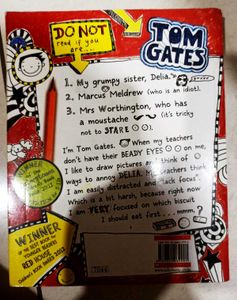 DO NOT
read if you
are...
TOM
GATES
1. My grumpy sister, Delia.
2. Marcus Meldrew (who is an idiot).
3. Mrs Worthington, who has
a moustache (it's tricky
not to STARE
I'm Tom Gates. When my teachers
don't have their BEADY EYES on me,
I like to draw pictures and think of
ways to annoy DELIA. My teachers think
I am easily distracted and lack focus.
Which is a bit harsh, because right now
I am VERY focused on which biscuit
I should eat first... mmm?
WINNER
WINNER
OF THE BEST BOOK FOR
YOUNGER READERS
RED HOUSE
CHILDREN'S BOOK AWARD 2012